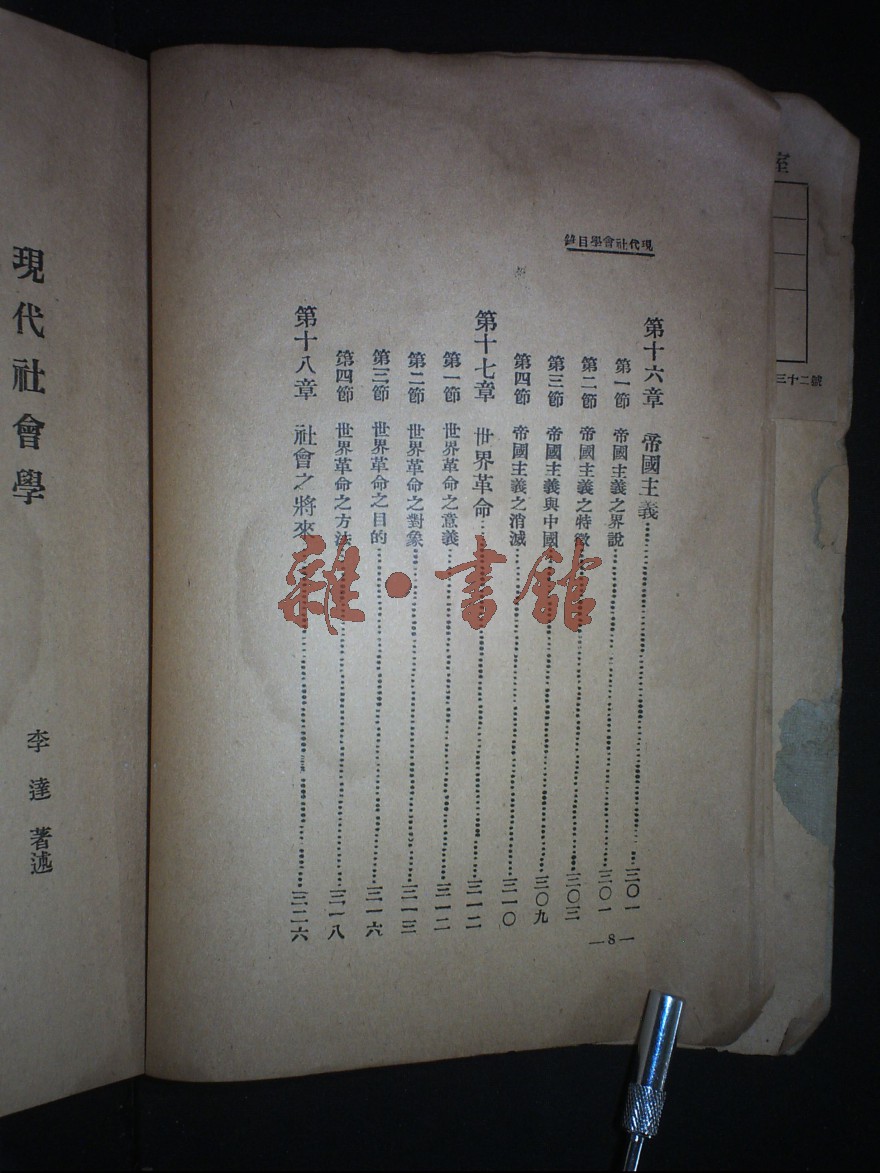 現代社會學目錄
第十六章 帝國主義……三〇一
第一節 帝國主義之界說……三〇一
第二節 帝國主義之特徵……三〇三
第三節 帝國主義與中國……三〇九
第四節 帝國主義之消滅……三一〇
第十七章 世界革命……三一二
第一節 世界革命之意義……三一二
第二節 世界革命之對象……三一三
第三節 世界革命之目的……三一六
第四節 世界革命之方法……三一八
第十八章 社會之將來……三二六
—8—
現代社會學
李達 著述
雜·書館
室
三十二號